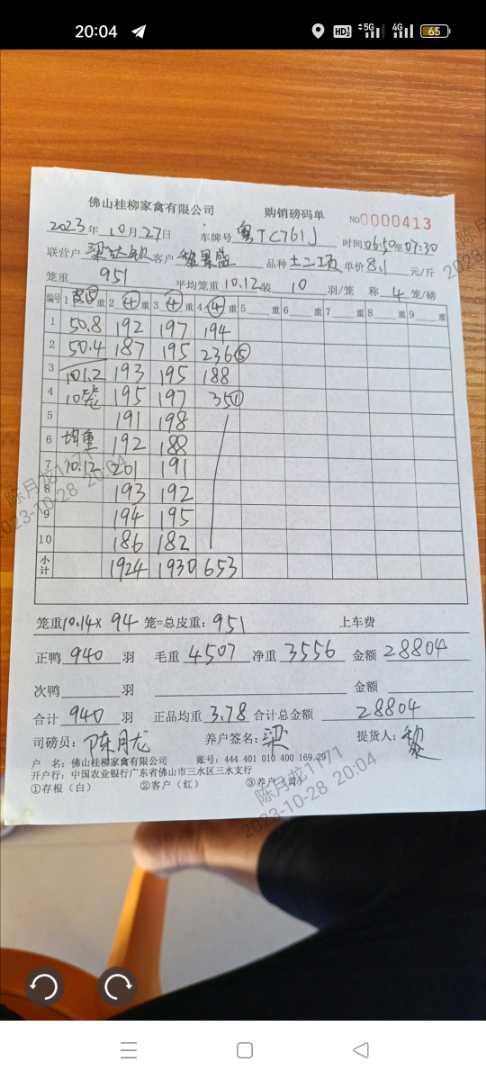 20:04 HD 5G 4G 65
佛山桂柳家禽有限公司 购销磅码单 NO0000413
2023年10月27日 车牌号 粤TC761J 时间06:50至07:30
联营户 客户 品种 土二 单价8.1元/斤
笼重 951 平均笼重10.12装 10 羽/笼 称 4 笼/磅
编号 1 皮 重 2 ④ 重 3 ④ 重 4 ④ 重 5 重 6 重 7 重 8 重 9 重
1 50.8 192 197 194
2 50.4 187 195 236⑤
3 101.2 193 195 188
4 10笼 195 197 35①
5 191 198
6 均重 192 188
7 10.12 201 191
8 193 192
9 194 195
10 186 182
小计 1924 1930 653
笼重10.14× 94 笼=总皮重：951 上车费
正鸭 940 羽 毛重 4507 净重 3556 金额 28804
次鸭 羽 金额
合计 940 羽 正品均重 3.78 合计总金额 28804
司磅员：陈月龙 养户签名：梁 提货人：黎
户 名：佛山桂柳家禽有限公司 账号：444 401 010 400 169 29
开户行：中国农业银行广东省佛山市三水区三水支行
①存根（白） ②客户（红） ③养户
陈月龙1171
2023-10-28 20:04
陈月龙1171
2023-10-28 20:04
陈月
2023-10